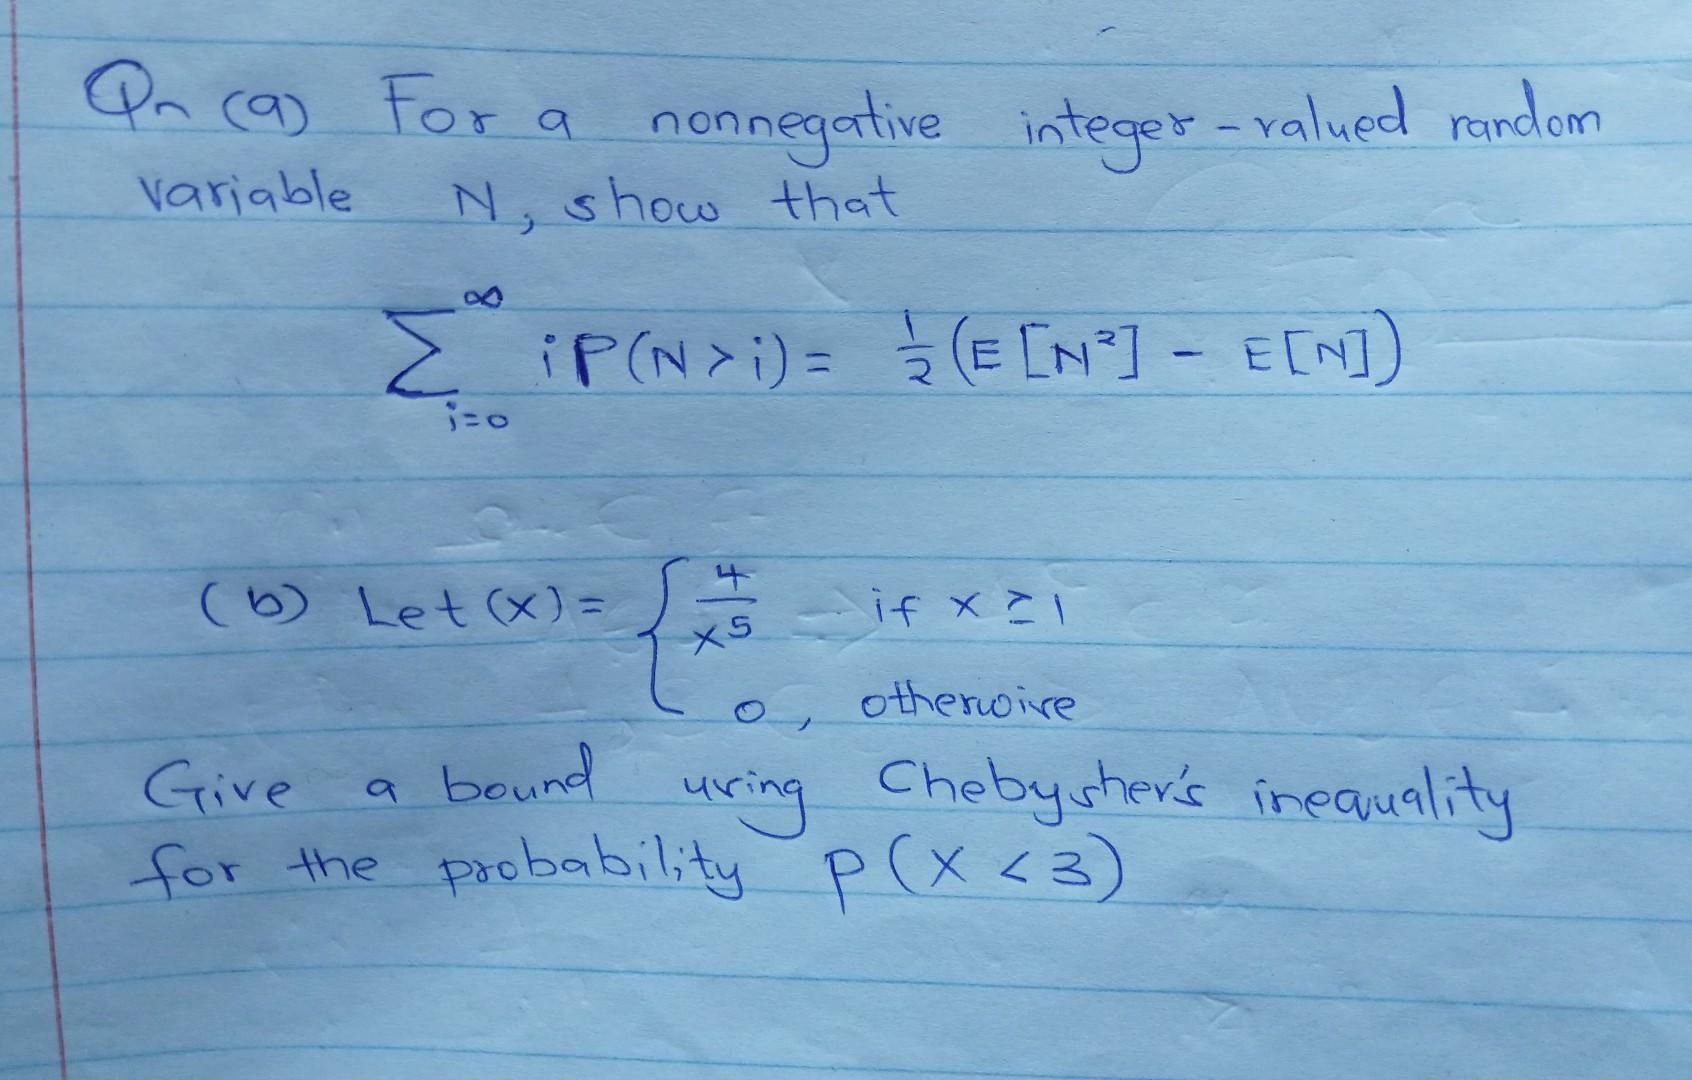 Qn (a) For a nonnegative integer-valued random
variable N, show that
∑_{i=0}^{∞} i P(N>i) = 1/2 (E[N²] - E[N])
(b) Let (x) = { 4/x⁵ if x ≥ 1
0, otherwise
Give a bound using Chebyshev's inequality
for the probability P(X<3)